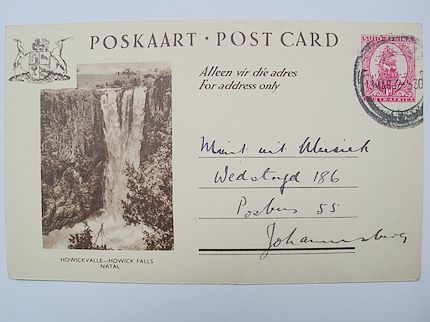 POSKAART · POST CARD
SUID-AFRIKA
Alleen vir die adres
For address only
SOUTH-AFRICA
Munt uit Musiek
Wedstryd 186
Posbus 55
Johannesburg
HOWICKVALLE—HOWICK FALLS
NATAL